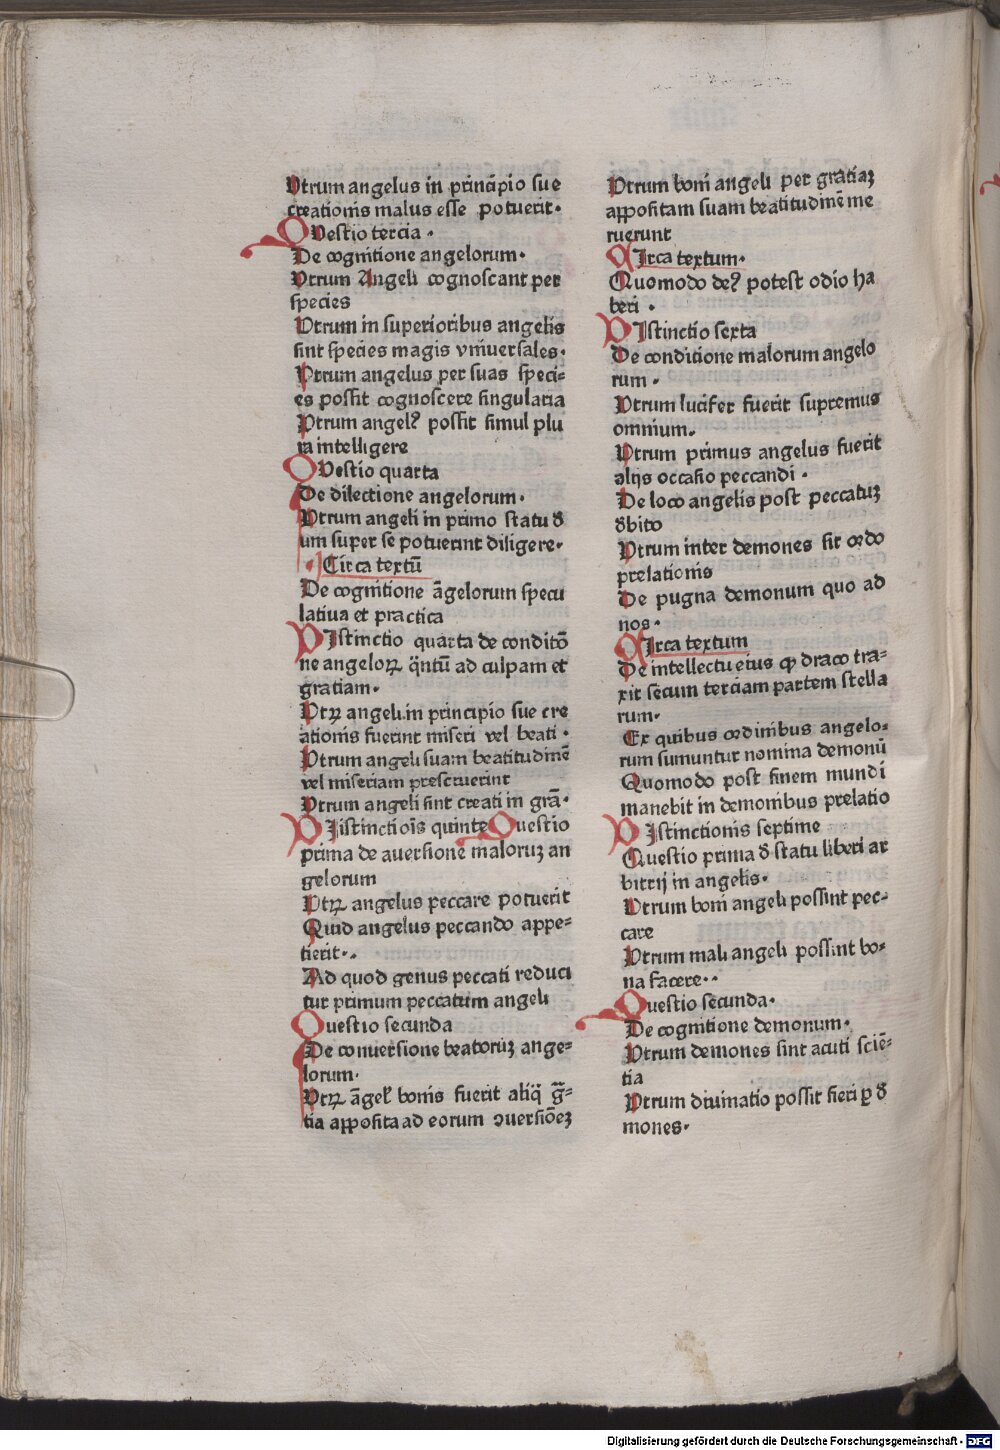 Vtrum angelus in principio sue
creationis malus esse potuerit.
QVestio tercia.
De cognitione angelorum.
Vtrum Angeli cognoscant per
species
Vtrum in superioribus angelis
sint species magis vniuersales.
Vtrum angelus per suas speci=
es possit cognoscere singularia
Vtrum angelꝰ possit simul plu
ra intelligere
QVestio quarta
De dilectione angelorum.
Vtrum angeli in primo statu d̕
um super se potuerint diligere.
Circa textū
De cognitione āgelorum specu
latiua et practica
DIstinctio quarta de conditō
ne angeloꝝ q̈ntū ad culpam et
gratiam.
Vtꝝ angeli in principio sue cre
ationis fuerint miseri vel beati.
Vtrum angeli suam beatitudinē
vel miseriam presciuerint
Vtrum angeli sint creati in grā.
DIistinctiōis quinte Questio
prima de auersione maloruꝫ an
gelorum
Vtꝝ angelus peccare potuerit
Quid angelus peccando appe=
tierit..
Ad quod genus peccati reduci
tur primum peccatum angeli
Questio secunda
De conuersione beatoruꝫ ange=
lorum.
Vtꝝ āgel̕ bonis fuerit aliq̈ gr̄a=
tia apposita ad eorum ꝯuersiōeꝫ
Vtrum boni angeli per gratiaꝫ
appositam suam beatitudinē me
ruerunt
CIrca textum.
Quomodo deꝰ potest odio ha
beri.
DIstinctio sexta
De conditione malorum angelo
rum.
Vtrum lucifer fuerit supremus
omnium.
Vtrum primus angelus fuerit
alijs occasio peccandi.
De loco angelis post peccatuꝫ
d̕bito
Vtrum inter demones sit ordo
prelationis
De pugna demonum quo ad
nos.
CIrca textum
De intellectu eius ꝙ draco tra=
xit secum terciam partem stella
rum.
Ex quibus ordinibus angelo=
rum sumuntur nomina demonū
Quomodo post finem mundi
manebit in demonibus prelatio
DIstinctionis septime
Questio prima d̕ statu liberi ar
bitrij in angelis.
Vtrum boni angeli possint pec=
care
Vtrum mali angeli possint bo=
na facere..
Questio secunda.
De cognitione demonum.
Vtrum demones sint acuti sciē=
tia
Vtrum diuinatio possit fieri ꝑ d̕
mones.
Digitalisierung gefördert durch die Deutsche Forschungsgemeinschaft - DFG